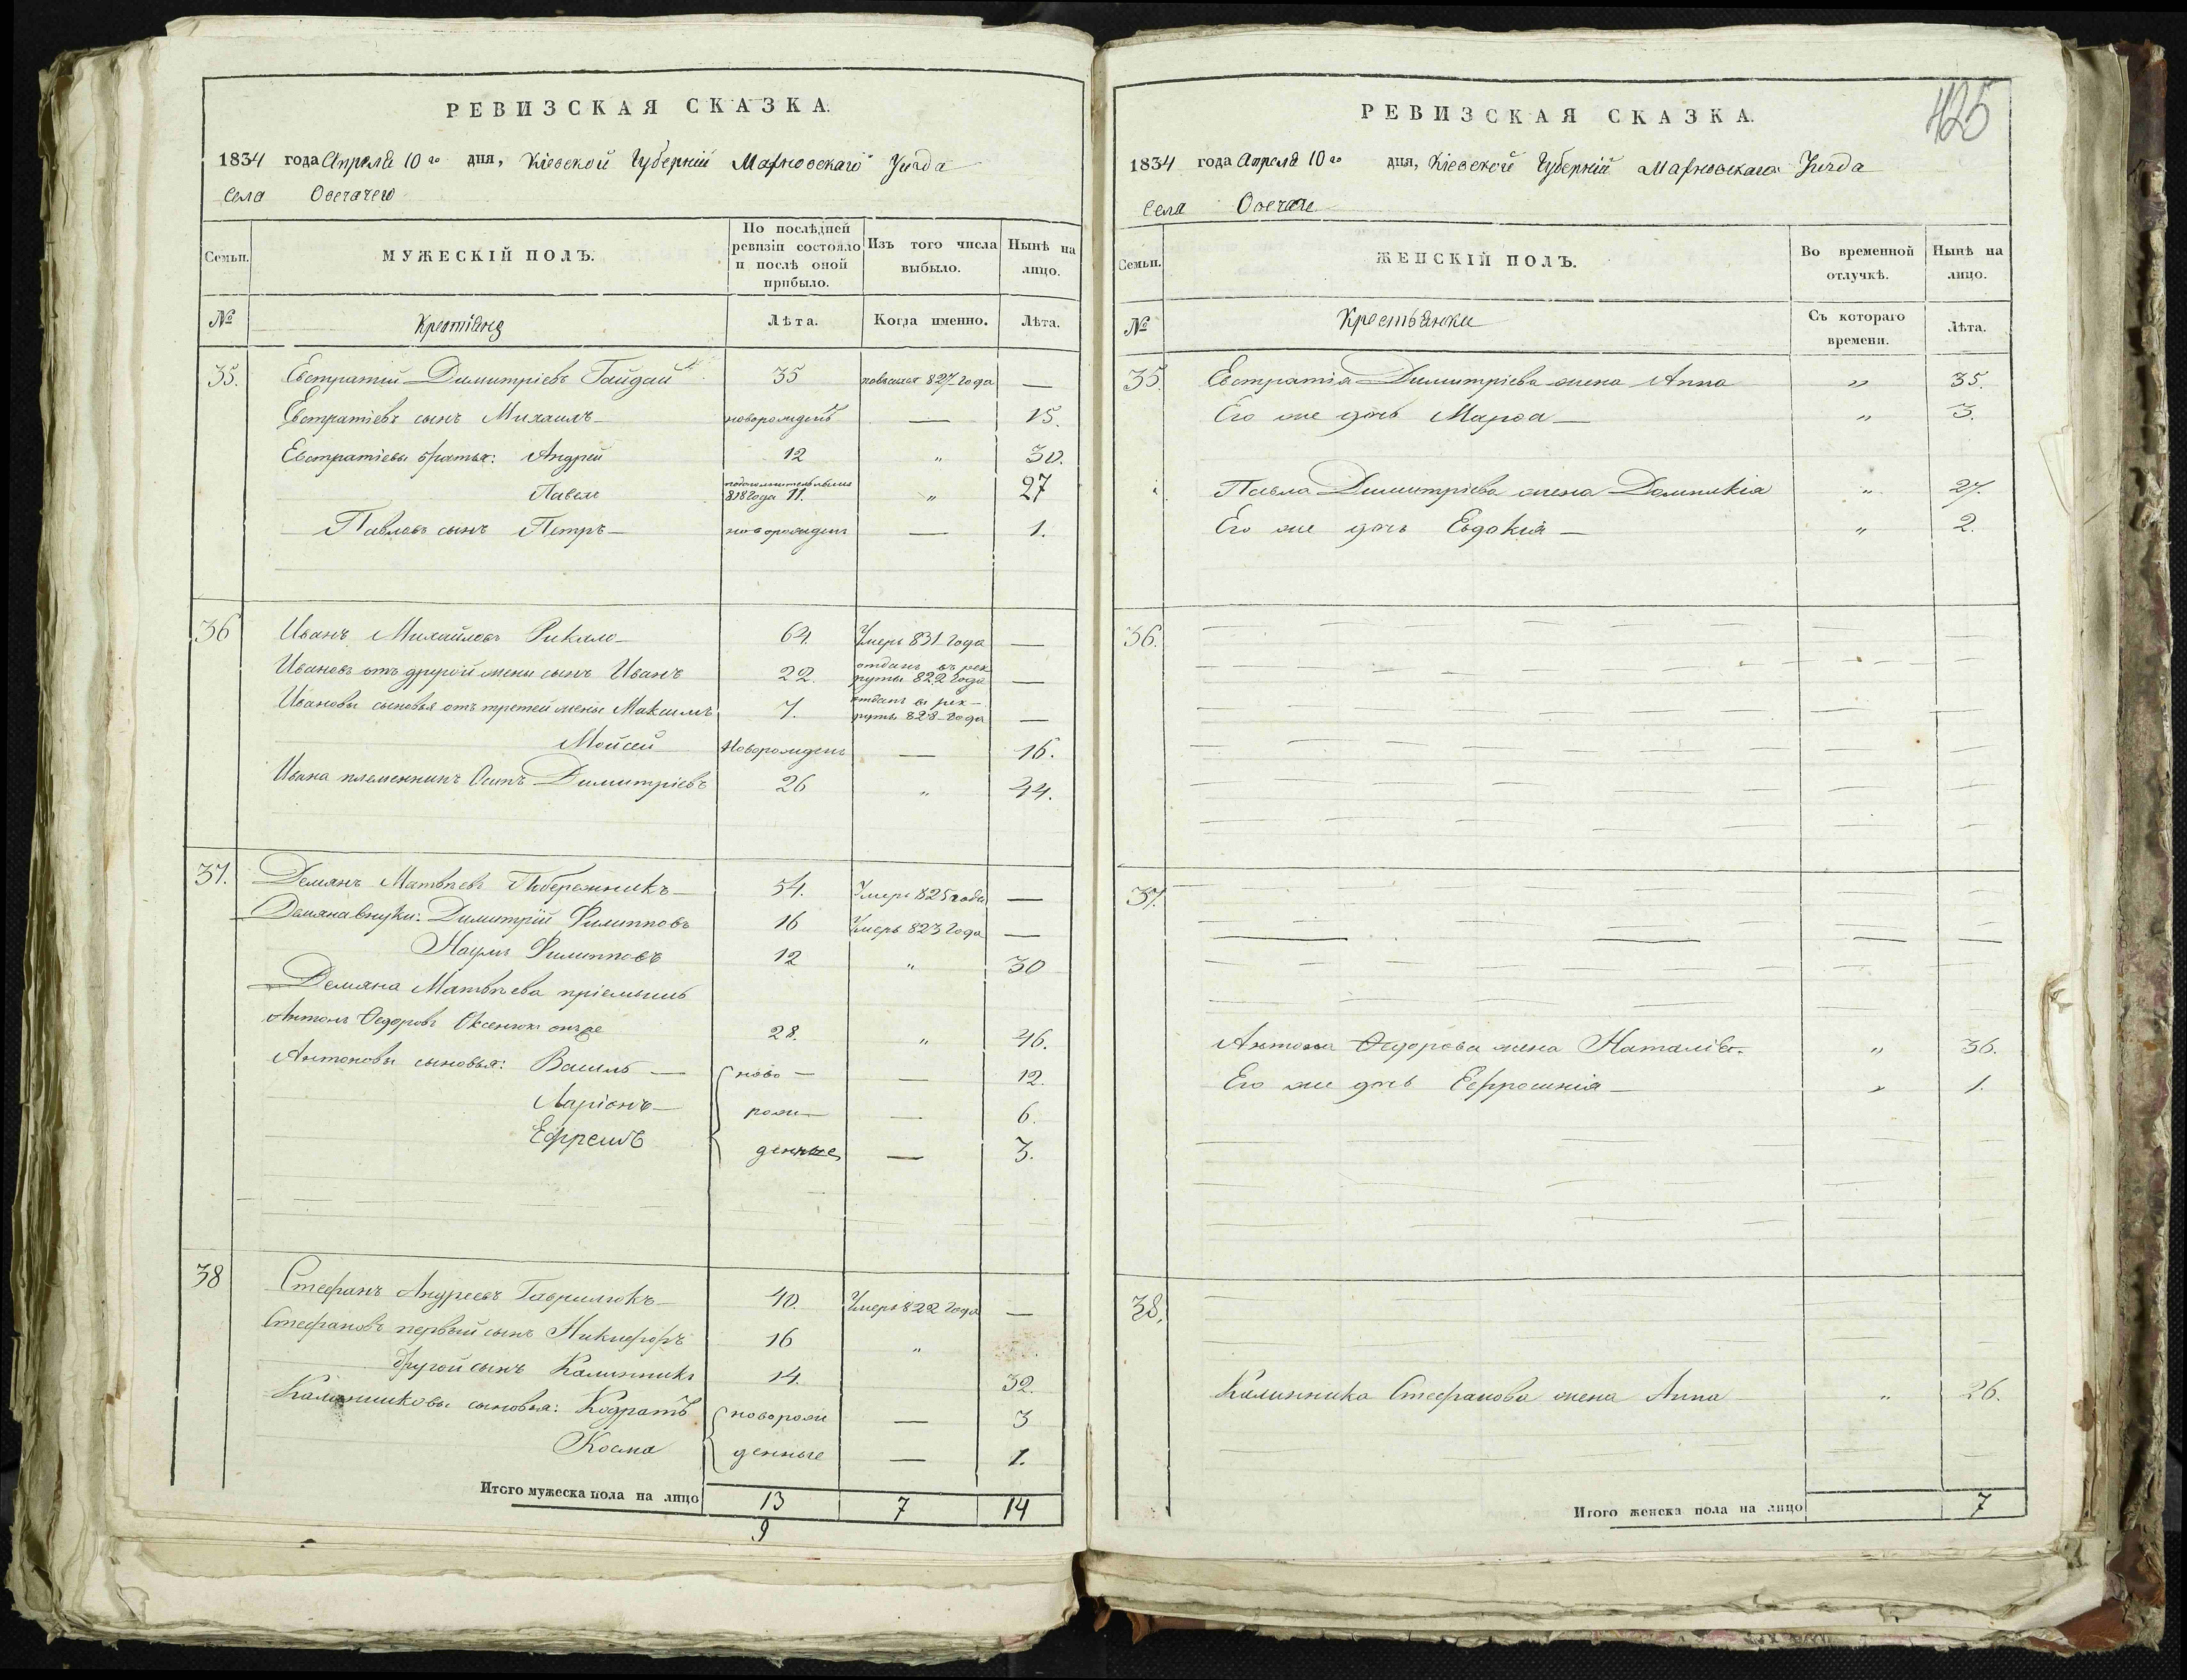 РЕВИЗСКАЯ СКАЗКА.
1834 года Апреля 10го дня, Кіевской Губерніи Махновскаго Уезда
Села Овечачего
Семьи. МУЖЕСКІЙ ПОЛЪ. По послѣдней ревизіи состояло и послѣ оной прибыло. Изъ того числа выбыло. Нынѣ на лицо.
№ Крестіяне Лѣта. Когда именно. Лѣта.
35. Евстратій Димитріевъ Гайдай 35 827 года —
Евстратіевъ сынъ Михаилъ — новорожденъ — 15.
Евстратіевы братья: Андрей 12 „ 30.
Павелъ 818 года 11. „ 27
Павловъ сынъ Петръ — новорожденъ — 1.
36 Иванъ Михайловъ Рикало — 64. Умеръ 831 года —
Ивановъ отъ другой жены сынъ Иванъ 22. отданъ въ рекруты 822 года —
Ивановы сыновья отъ третей жены Максимъ 7. отданъ въ рекруты 828 года —
Мойсей Новорожденъ — 16.
Ивана племенникъ Осипъ Димитріевъ 26 „ 44.
37. Демянъ Матвѣевъ Побережникъ — 54. Умеръ 825 года —
Демяна внуки: Димитрій Филипповъ 16 Умеръ 823 года —
Наумъ Филипповъ 12 „ 30
Демяна Матвѣева пріемышъ
Антонъ Федоровъ Оксенюкъ онъ же 28. „ 46.
Антоновы сыновья: Василь — ново — — 12.
Ларіонъ — рож — — 6.
Ефремъ денные — 3.
38 Стефанъ Андреевъ Гаврилюкъ — 40. Умеръ 822 года —
Стефановъ первый сынъ Никифоръ 16 „
другой сынъ Калинникъ 14. 32.
Калинниковы сыновья: Кодратъ новорож — 3
Косма денные — 1.
Итого мужеска пола на лицо 13 7 14
9
425
РЕВИЗСКАЯ СКАЗКА.
1834 года Апреля 10го дня, Кіевской Губерніи Махновскаго Уезда
Села Овечаче
Семьи. ЖЕНСКІЙ ПОЛЪ. Во временной отлучкѣ. Нынѣ на лицо.
№ Крестьянки Съ котораго времени. Лѣта.
35. Евстратія Димитріева жена Анна „ 35.
Его же дочь Марфа — „ 3.
Павла Димитріева жена Домникія „ 27.
Его же дочь Евдокія — „ 2.
36.
37.
Антона Федорова жена Наталія. „ 36.
Его же дочь Ефросинія — „ 1.
38.
Калинника Стефанова жена Анна „ 26.
Итого женска пола на лицо 7